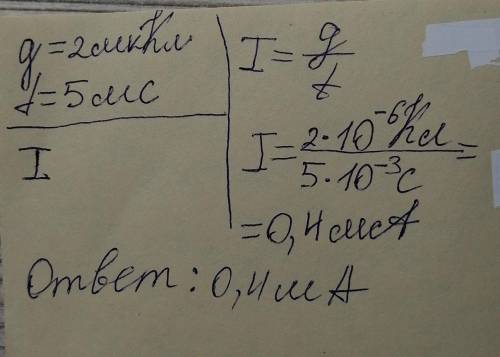 g = 2мкКл
t = 5мс
I
I = g/t
I = 2·10⁻⁶Кл / 5·10⁻³с =
= 0,4мсА
Ответ: 0,4мА